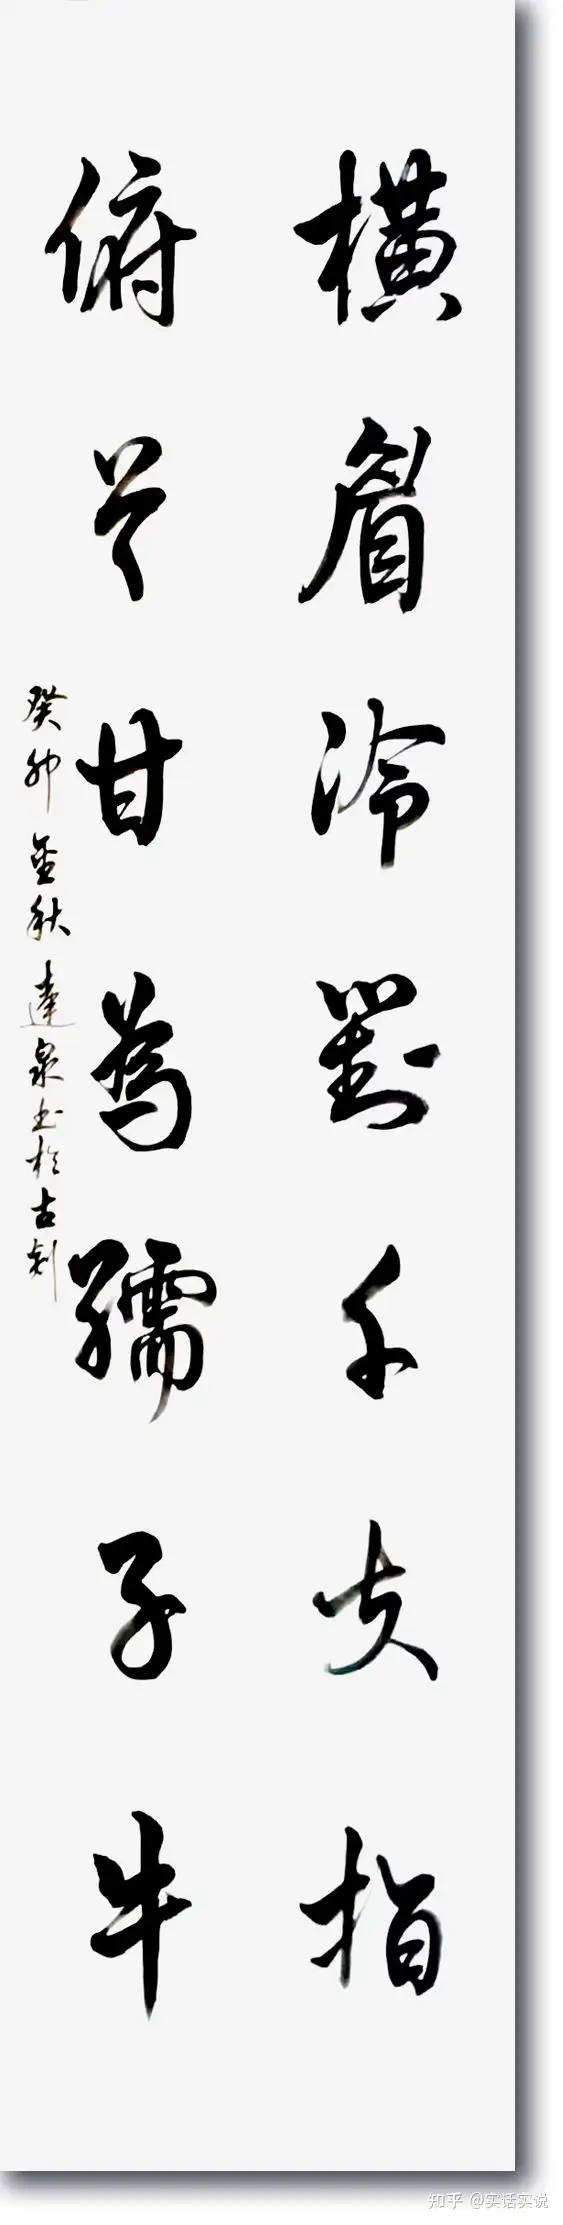 橫眉冷對千夫指
俯首甘為孺子牛
癸卯金秋達泉书於古
知乎 @实话实说